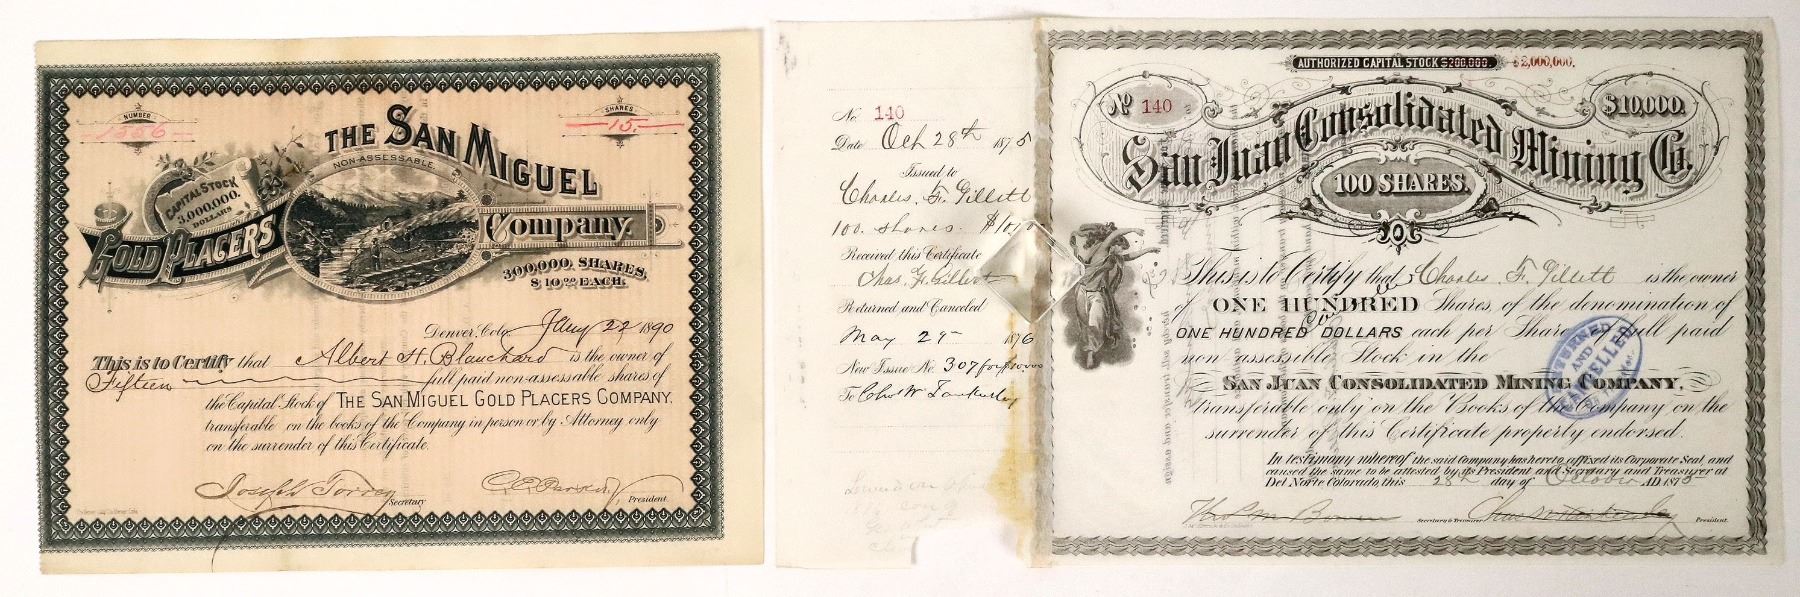 NUMBER
1556
SHARES
15.
THE SAN MIGUEL
NON-ASSESSABLE
CAPITAL STOCK
3,000,000.
DOLLARS
GOLD PLACERS
Company.
300,000. SHARES,
$10.00 EACH.
Denver, Colo. Jany 22 1890
This is to Certify that Albert H. Blanchard is the owner of
Fifteen full paid non-assessable shares of
the Capital Stock of THE SAN MIGUEL GOLD PLACERS COMPANY.
transferable on the books of the Company in person or by Attorney only
on the surrender of this Certificate.
Joseph Torrey Secretary
President.
No. 140
Date Oct 28th 1875
Issued to
Charles. F. Gillett
100. shares.
Received this Certificate
Chas. F. Gillett
Returned and Canceled
May 29 1876
New Issue No. 307 for
To
AUTHORIZED CAPITAL STOCK $200,000. $2,000,000.
No 140
$10,000.
San Juan Consolidated Mining Co.
100 SHARES.
This is to Certify that Charles. F. Gillett is the owner
of ONE HUNDRED Shares, of the denomination of
ONE HUNDRED DOLLARS each per Share, of full paid
non-assessible Stock in the
SAN JUAN CONSOLIDATED MINING COMPANY,
transferable only on the Books of the Company on the
surrender of this Certificate properly endorsed.
RETURNED
AND
CANCELLED
In testimony whereof the said Company has hereto affixed its Corporate Seal, and
caused the same to be attested by its President and Secretary and Treasurer at
Del Norte Colorado, this 28th day of October A.D. 1875
Secretary & Treasurer
President.